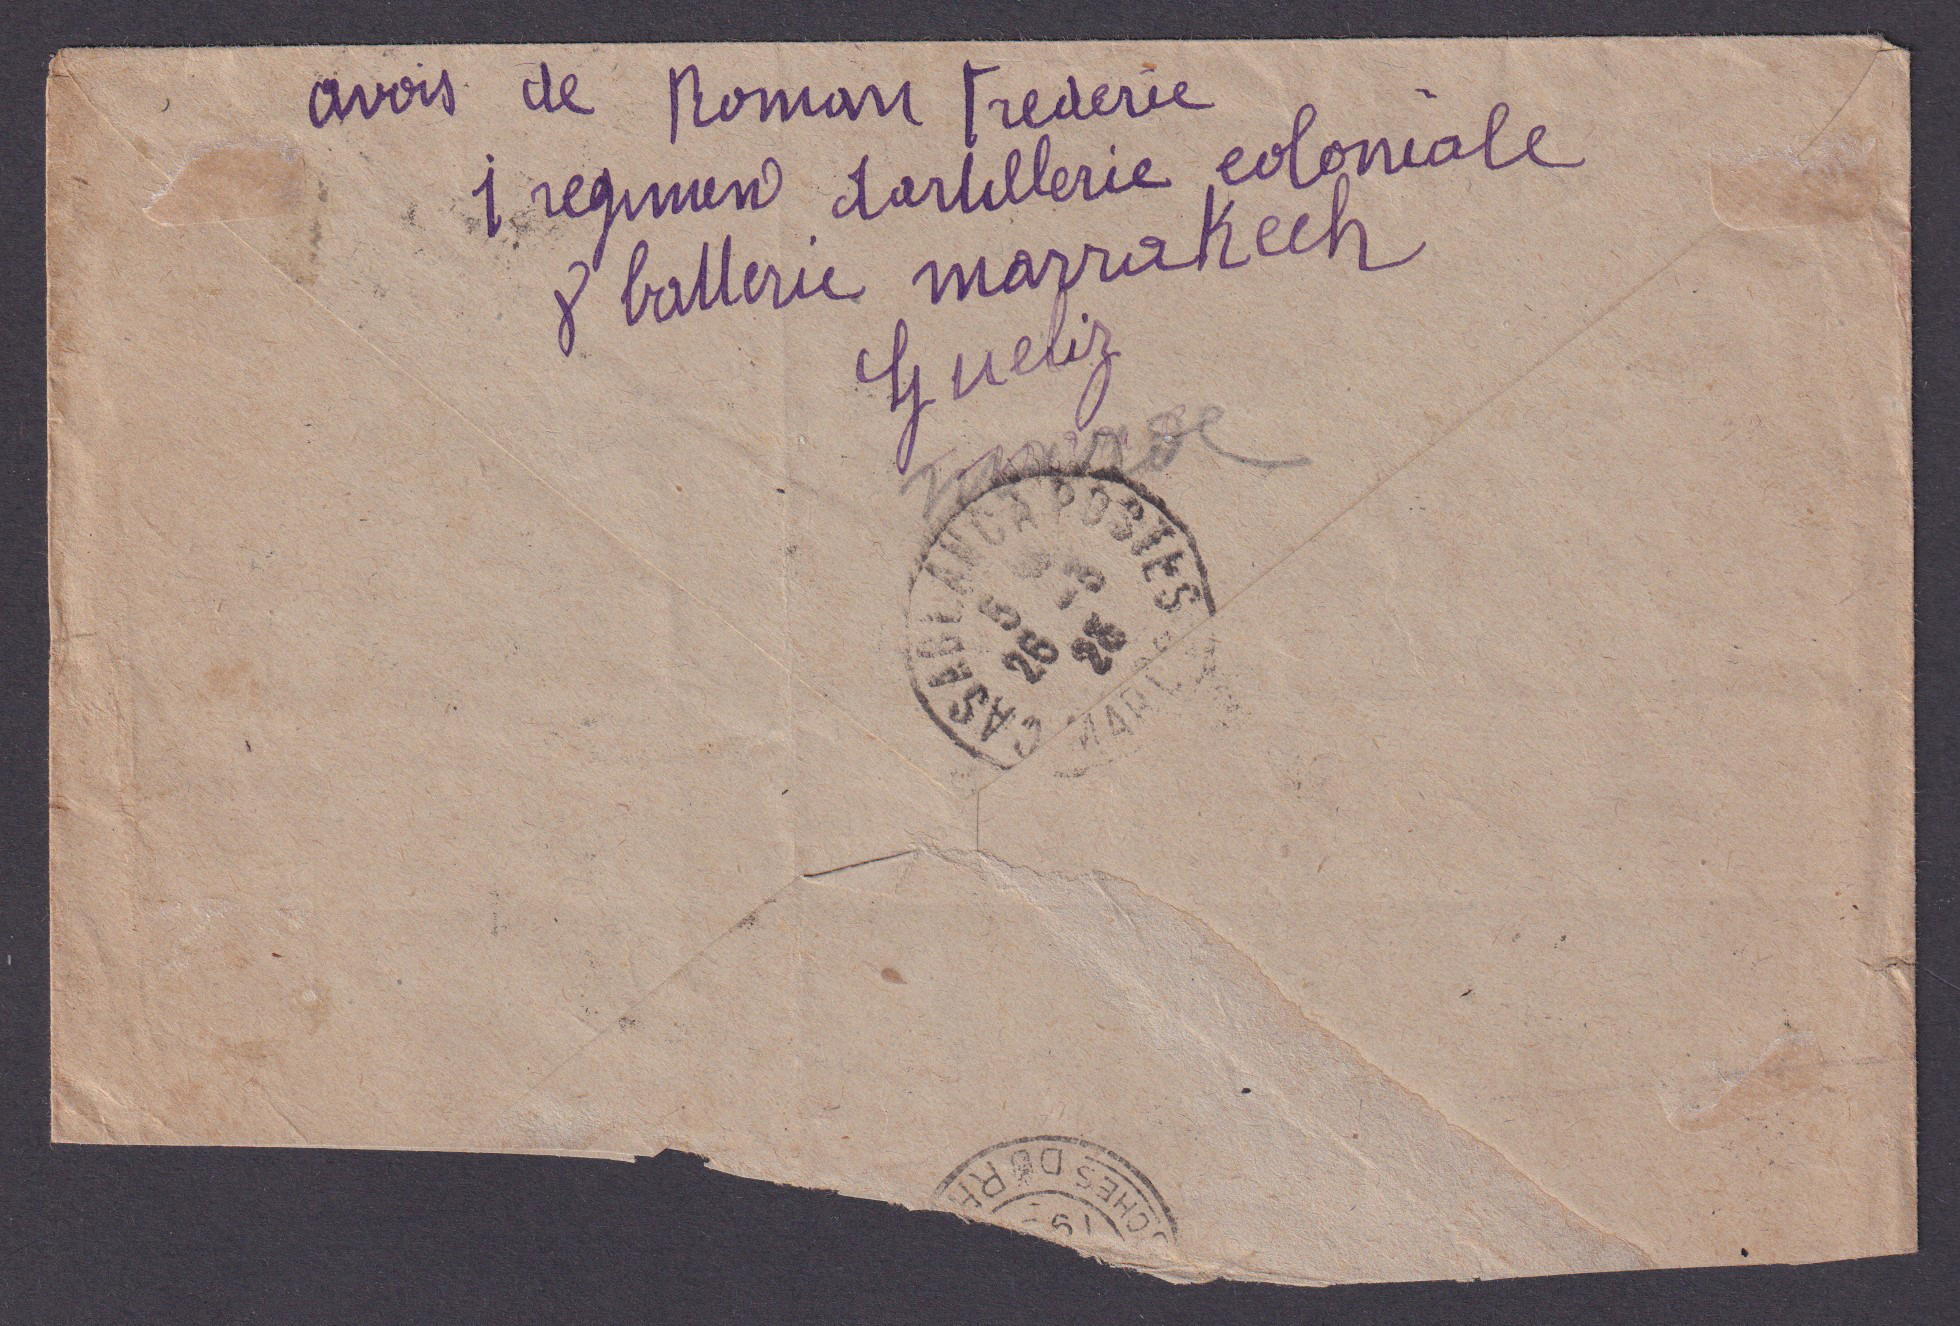 avois de Roman Frederic
1 regimen dartillerie coloniale
8 batterie marrakech
Gueliz
CASABLANCA POSTES
5 -3
25 25
MAROC
CHES DU RH
19